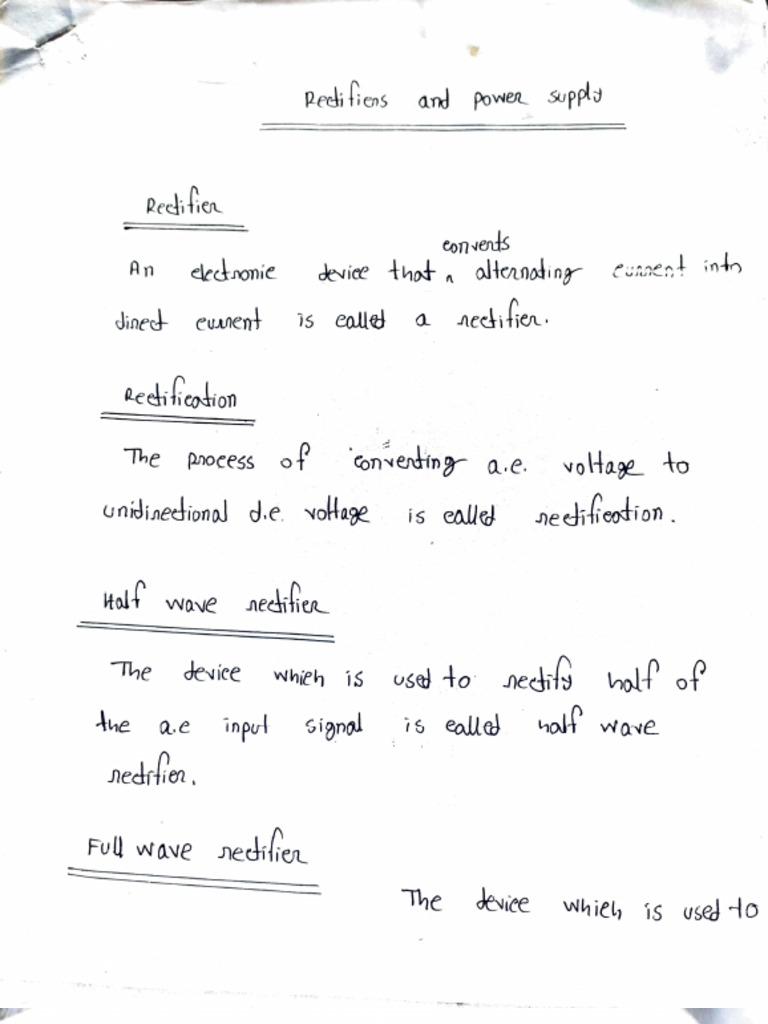 Rectifiers and power supply
Rectifier
converts
An electronic device that ^ alternating current into
direct current is called a rectifier.
Rectification
The process of converting a.c. voltage to
unidirectional d.c. voltage is called rectification.
Half wave rectifier
The device which is used to rectify half of
the a.c input signal is called half wave
rectifier.
Full wave rectifier
The device which is used to